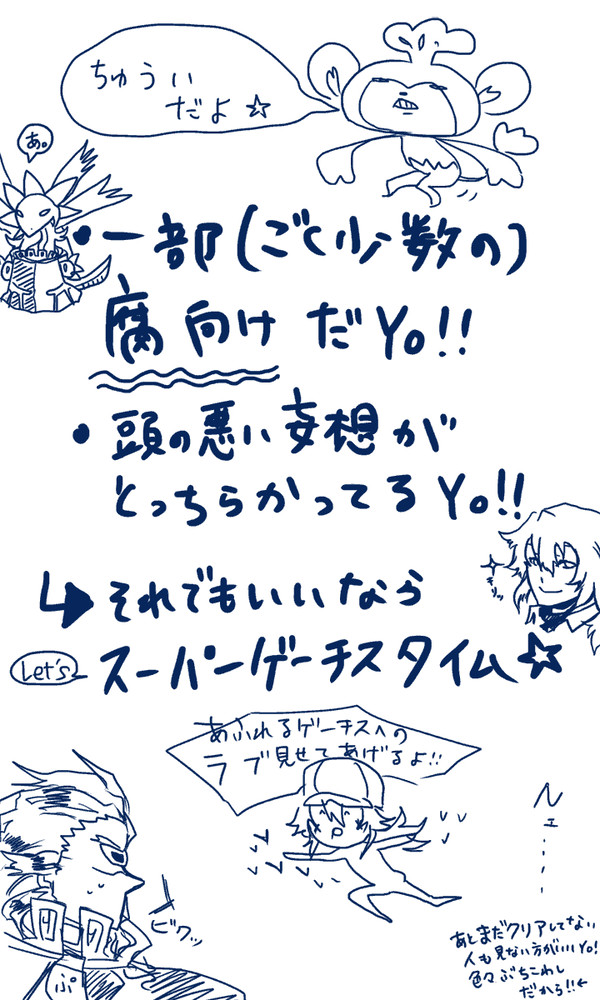 ちゅうい
だよ☆
あ。
・一部(ごく少数の)
腐向けだYo!!
・頭の悪い妄想が
とっちらかってるYo!!
それでもいいなら
Let's
スーパーゲーチスタイム☆
あふれるゲーチスへの
ラブ見せてあげるよ!!
ビクッ
あとまだクリアしてない
人も見ない方がいいYo!
色々ぶちこわし
だから!!←